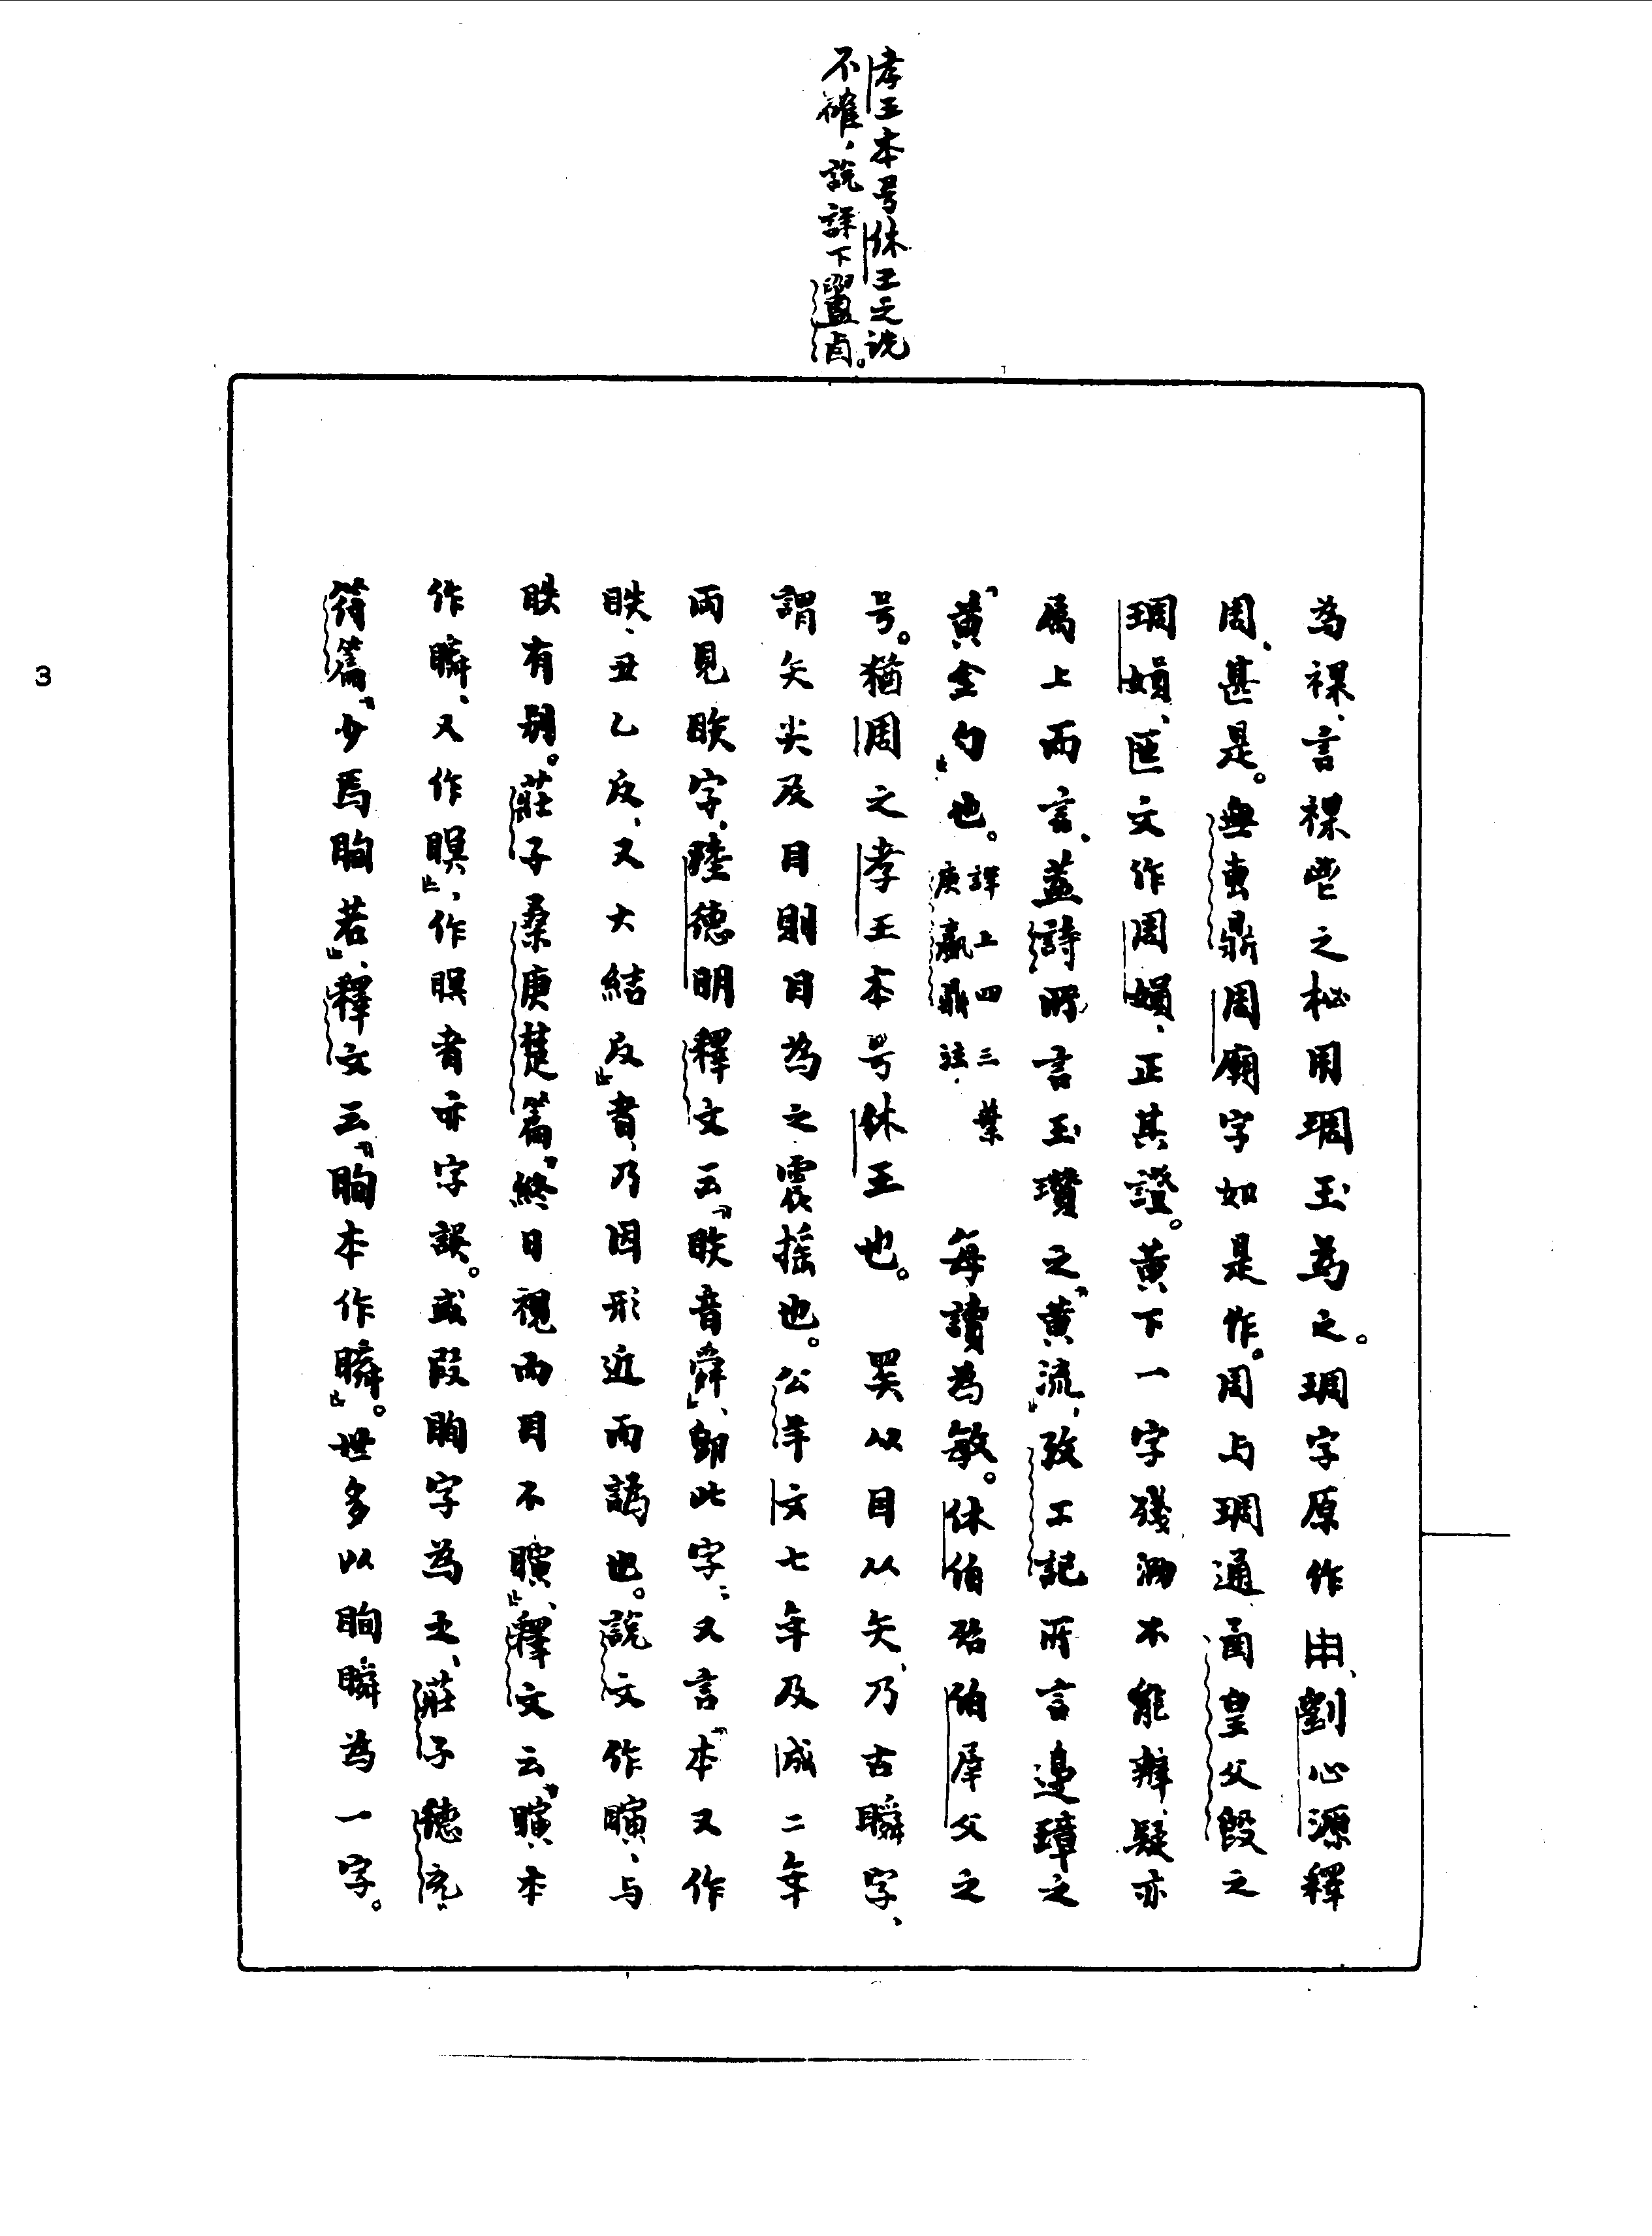 孝王本号休王之说
不確，説詳下𥃝卣。
為祼、言祼璺之柲用琱玉為之。琱字原作𤰔、劉心源釋
周、甚是。無叀鼎周廟字如是作。周与琱通、函皇父殷之
琱娟、匜文作周娟、正其證。黃下一字殘泐不能辨、疑亦
属上而言、蓋詩所言玉瓚之『黃流』，攷工記所言邊璋之
『黃金勺』也。詳上四三葉
庚嬴鼎註．
每讀為敏。休伯殆伯犀父之
号。猶周之孝王本号休王也。　罢以目从矢、乃古瞬字、
謂矢尖及目則目為之震摇也。公羊文七年及成二年
兩見眣字、陸德明釋文云『眣音舜』、卽此字；又言『本又作
眣、丑乙反、又大結反』者、乃因形近而譌也。説文作瞚、与
眣有别。莊子桑庚楚篇『終日視而目不瞚』、釋文云『瞚、本
作瞬、又作瞁』，作瞁者亦字誤。或段眴字為之、莊子德充
符篇『少焉眴若』、釋文云『眴本作瞬』。世多以眴瞬為一字。
3